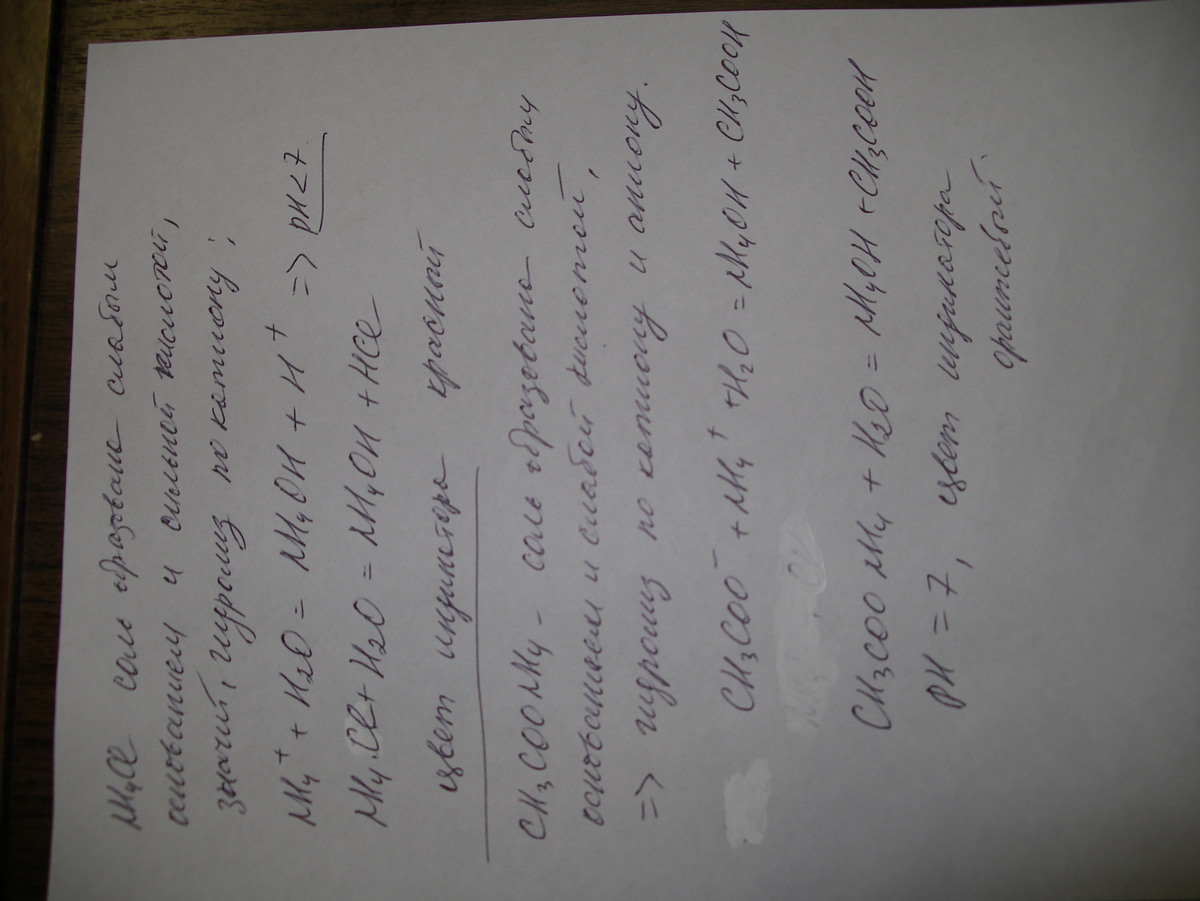 NH₄Cl соль образована слабым
основанием и сильной кислотой,
значит, гидролиз по катиону;
NH₄⁺ + H₂O = NH₄OH + H⁺ => pH<7.
NH₄Cl + H₂O = NH₄OH + HCl
цвет индикатора красный
CH₃COONH₄ - соль образована слабым
основанием и слабой кислотой,
=> гидролиз по катиону и аниону.
CH₃COO⁻ + NH₄⁺ + H₂O = NH₄OH + CH₃COOH
CH₃COONH₄ + H₂O = NH₄OH + CH₃COOH
pH = 7, цвет индикатора
оранжевый.